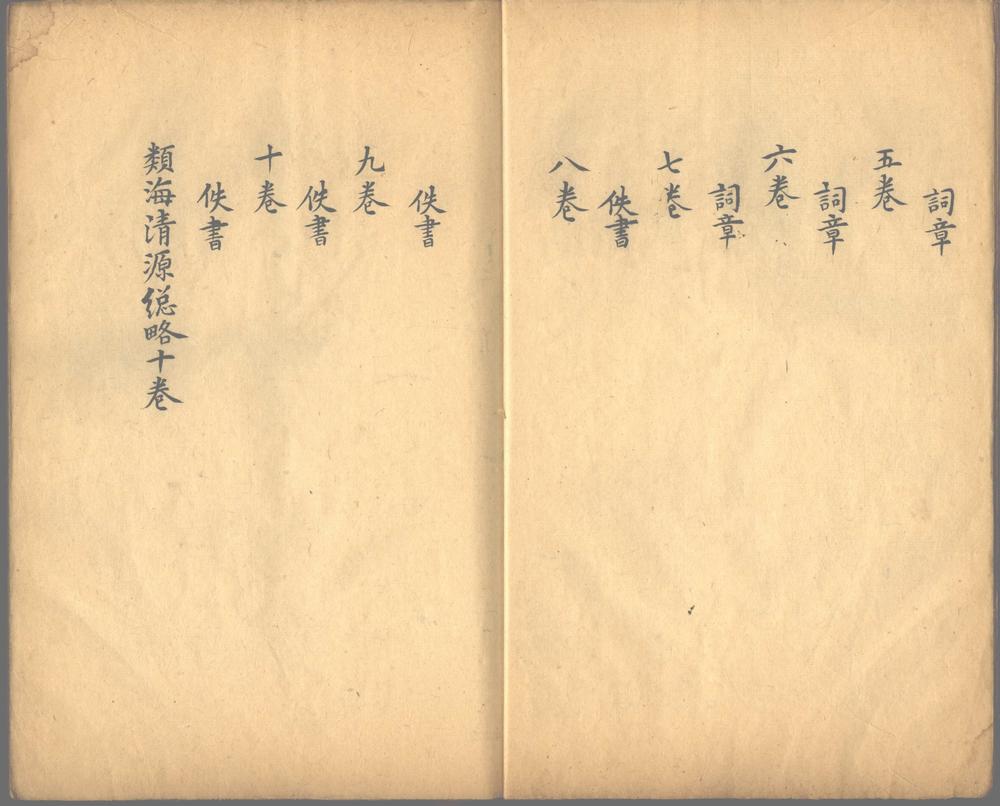 詞章
五卷
詞章
六卷
詞章
七卷
佚書
八卷
佚書
九卷
佚書
十卷
佚書
類海清源総略十卷